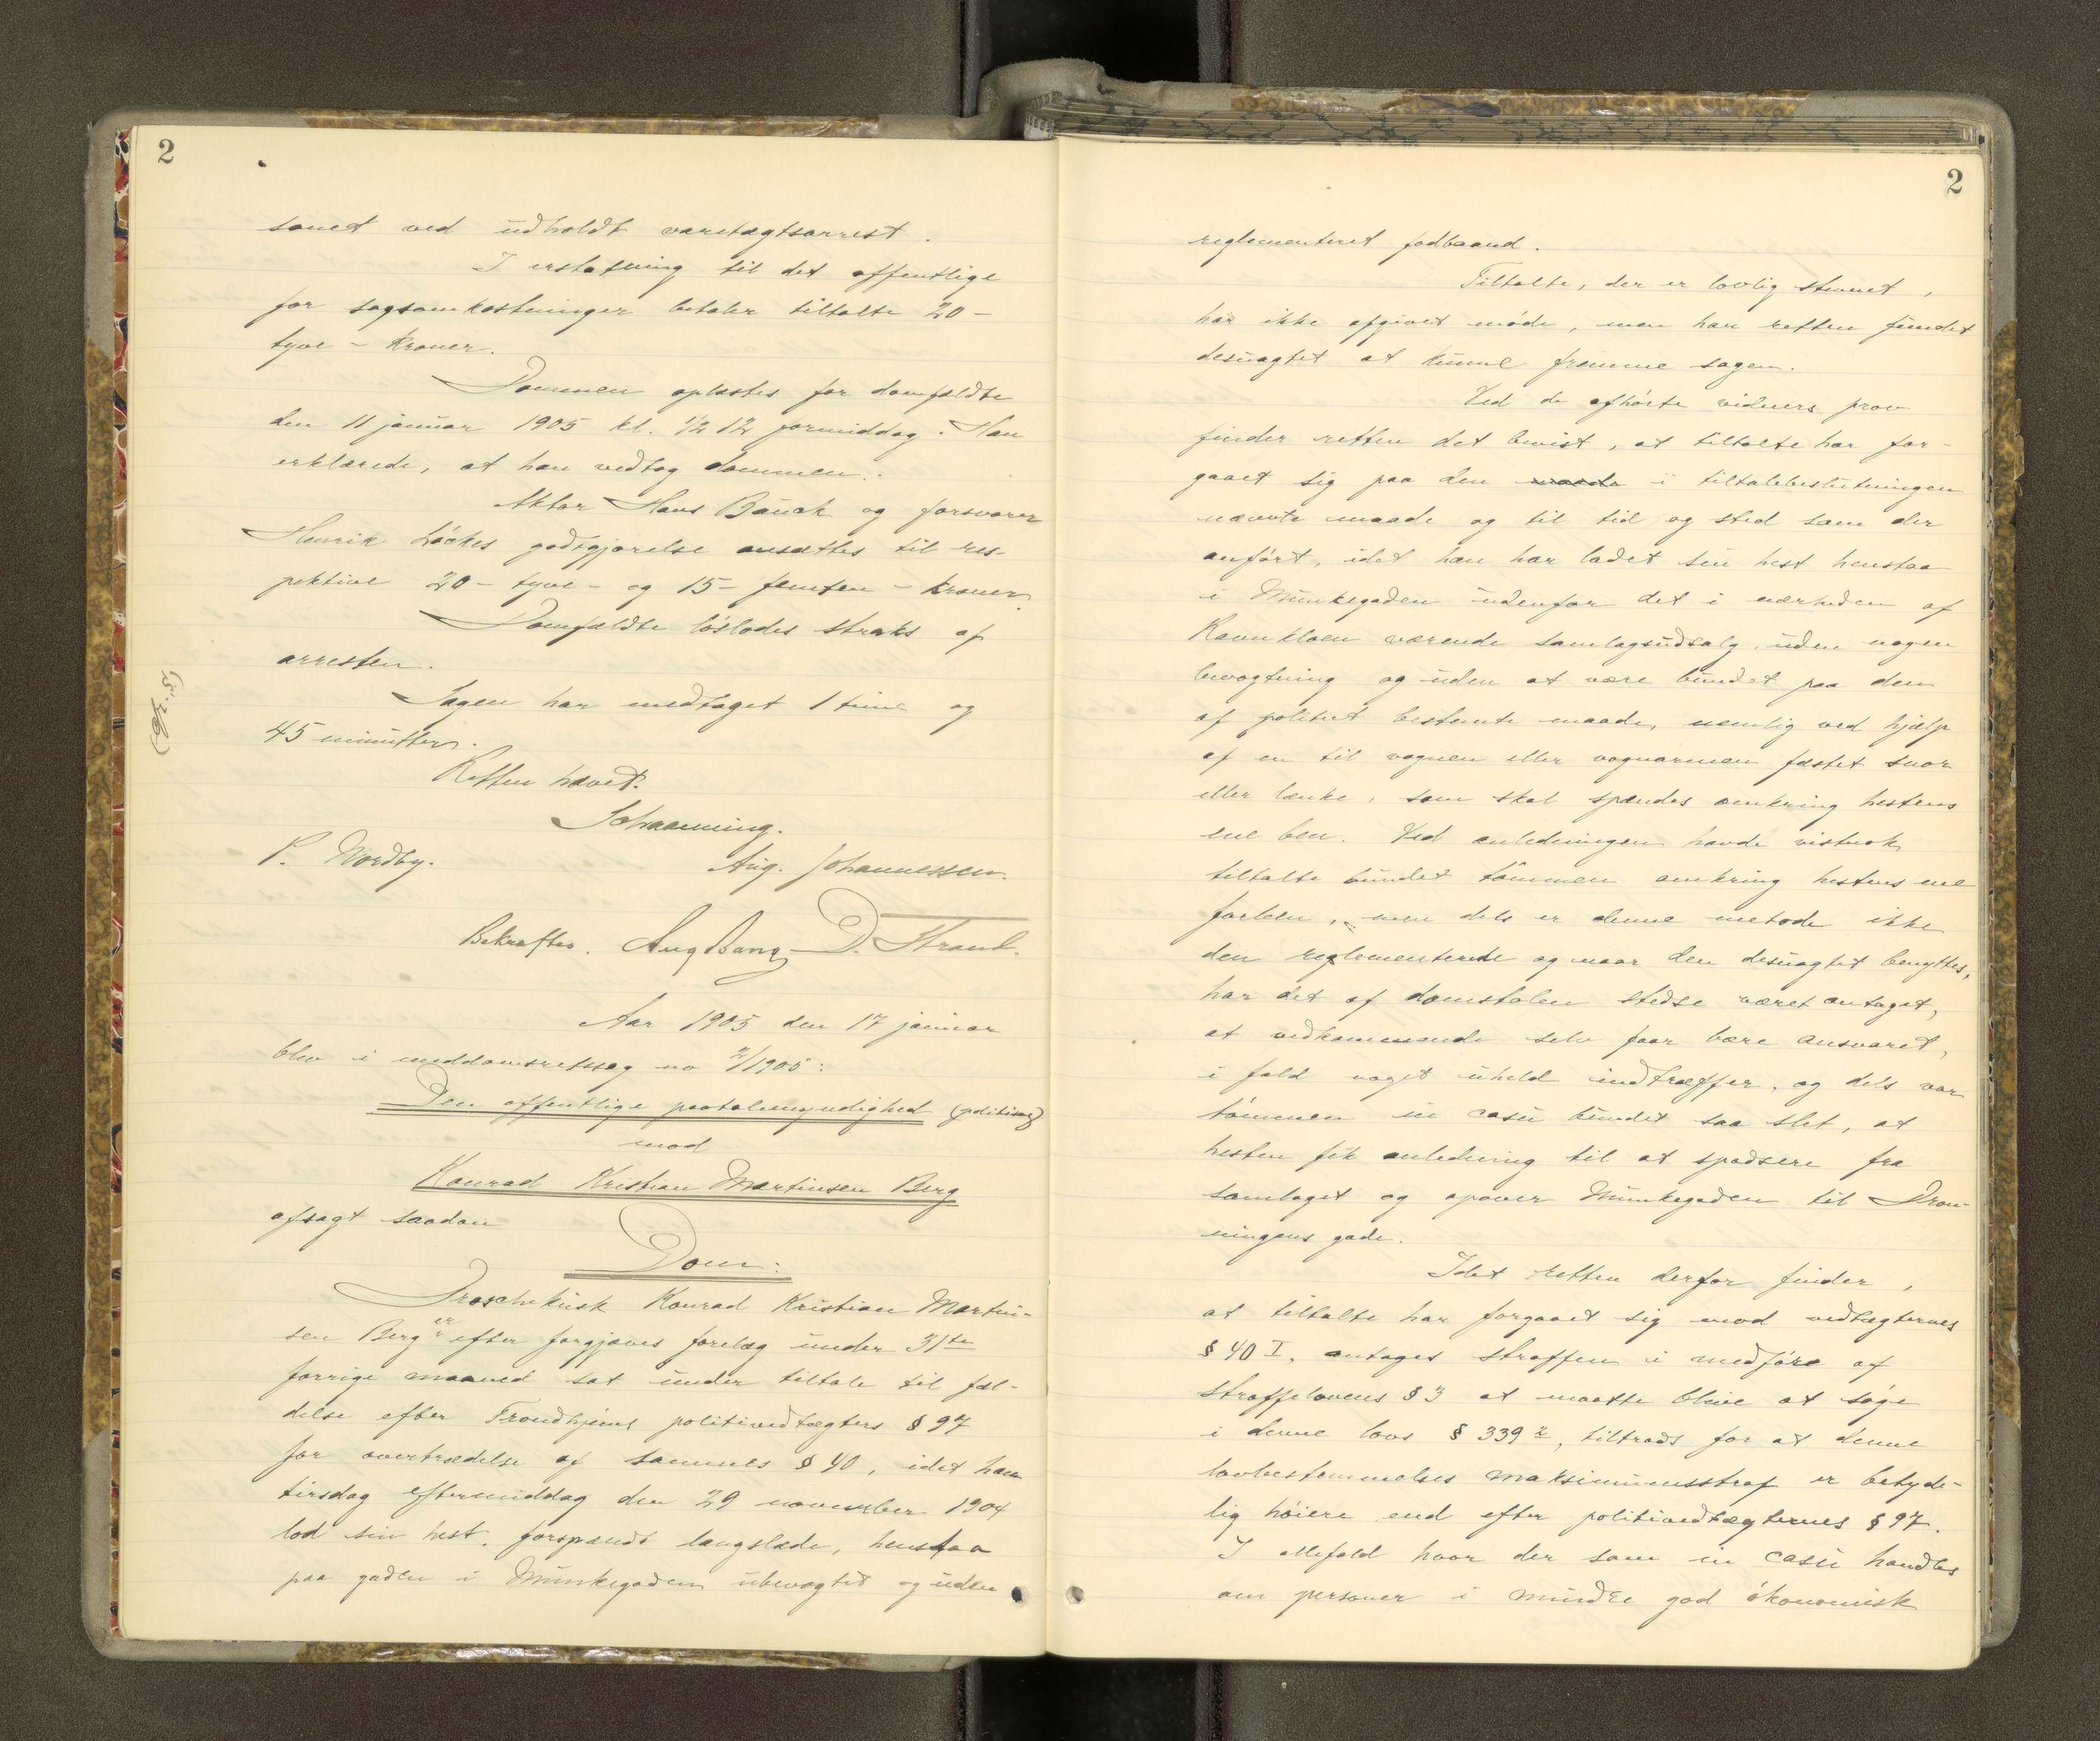 2
sonet ved udholdt varetægtsarrest.
I erstatning til det offentlige
for sagsomkostninger betaler tiltalte 20 -
tyve - kroner.
Dommen oplæstes for domfældte
den 11 januar 1905 kl. 1/2 12 formiddag. Han
erklærede, at han vedtog dommen.
Aktor Hans Bauck og forsvarer
Henrik Löckes godtgjørelse ansættes til res-
pektive 20 - tyve - og 15 - femten - kroner.
Domfældte løslodes straks af
arresten.
Sagen har medtaget 1 time og
45 minutter.
Retten hævet.
Schraaning.
P. Nordby. Aug. Johannessen.
Bekræftes. Aug Bang D. Strand.
Aar 1905 den 17 januar
blev i meddomsretssag no 2/1905:
Den offentlige paatalemyndighed (politimæs)
mod
Konrad Kristian Martinsen Berg
afsagt saadan
Dom:
Droschekusk Konrad Kristian Martin-
sen Berg er efter forgjæves forelæg under 31te
forrige maaned sat under tiltale til fæl-
delse efter Trondhjems politivedtægters § 97
for overtrædelse af sammes § 40, idet han
tirsdag eftermiddag den 29 november 1904
lod sin hest, forspændt langslæde, henstaa
paa gaden i Munkegaden ubevogtet og uden
2
reglementeret fodbaand.
Tiltalte, der er lovlig stevnet,
har ikke afgivet møde, men har retten fundet
desuagtet at kunne fremme sagen.
Ved de afhørte vidners prov
finder retten det bevist, at tiltalte har for-
gaaet sig paa den maade i tiltalebeslutningen
nævnte maade og til tid og sted som der
anført, idet han har ladet sin hest henstaa
i Munkegaden udenfor det i nærheden af
Ravnkloen værende samlagsudsalg uden nogen
bevogtning og uden at være bundet paa den
af politiet bestemte maade, nemlig ved hjælp
af en til vognen eller vognarmen fæstet snor
eller lænke, som skal spændes omkring hestens
ene ben. Ved anledningen havde vistnok
tiltalte bundet tømmen omkring hestens ene
forben, men dels er denne metode ikke
den reglementerede og naar den desuagtet benyttes,
har det af domstolen stedse været antaget,
at vedkommende selv faar bære ansvaret,
i fald noget uheld indtræffer, og dels var
tømmen in casu bundet saa slet, at
hesten fik anledning til at spadsere fra
samlaget og opover Munkegaden til Dron-
ningens gade.
Idet retten derfor finder,
at tiltalte har forgaaet sig mod vedtægternes
§ 40 I, antages straffen i medføre af
straffelovens § 3 at maatte blive at søge
i denne lovs § 339 2, tiltrods for at denne
lovbestemmelses maksimumsstraf er betyde-
lig høiere end efter politivedtægternes § 97.
I allefald hvor der som in casu handles
om personer i mindre god økonomisk